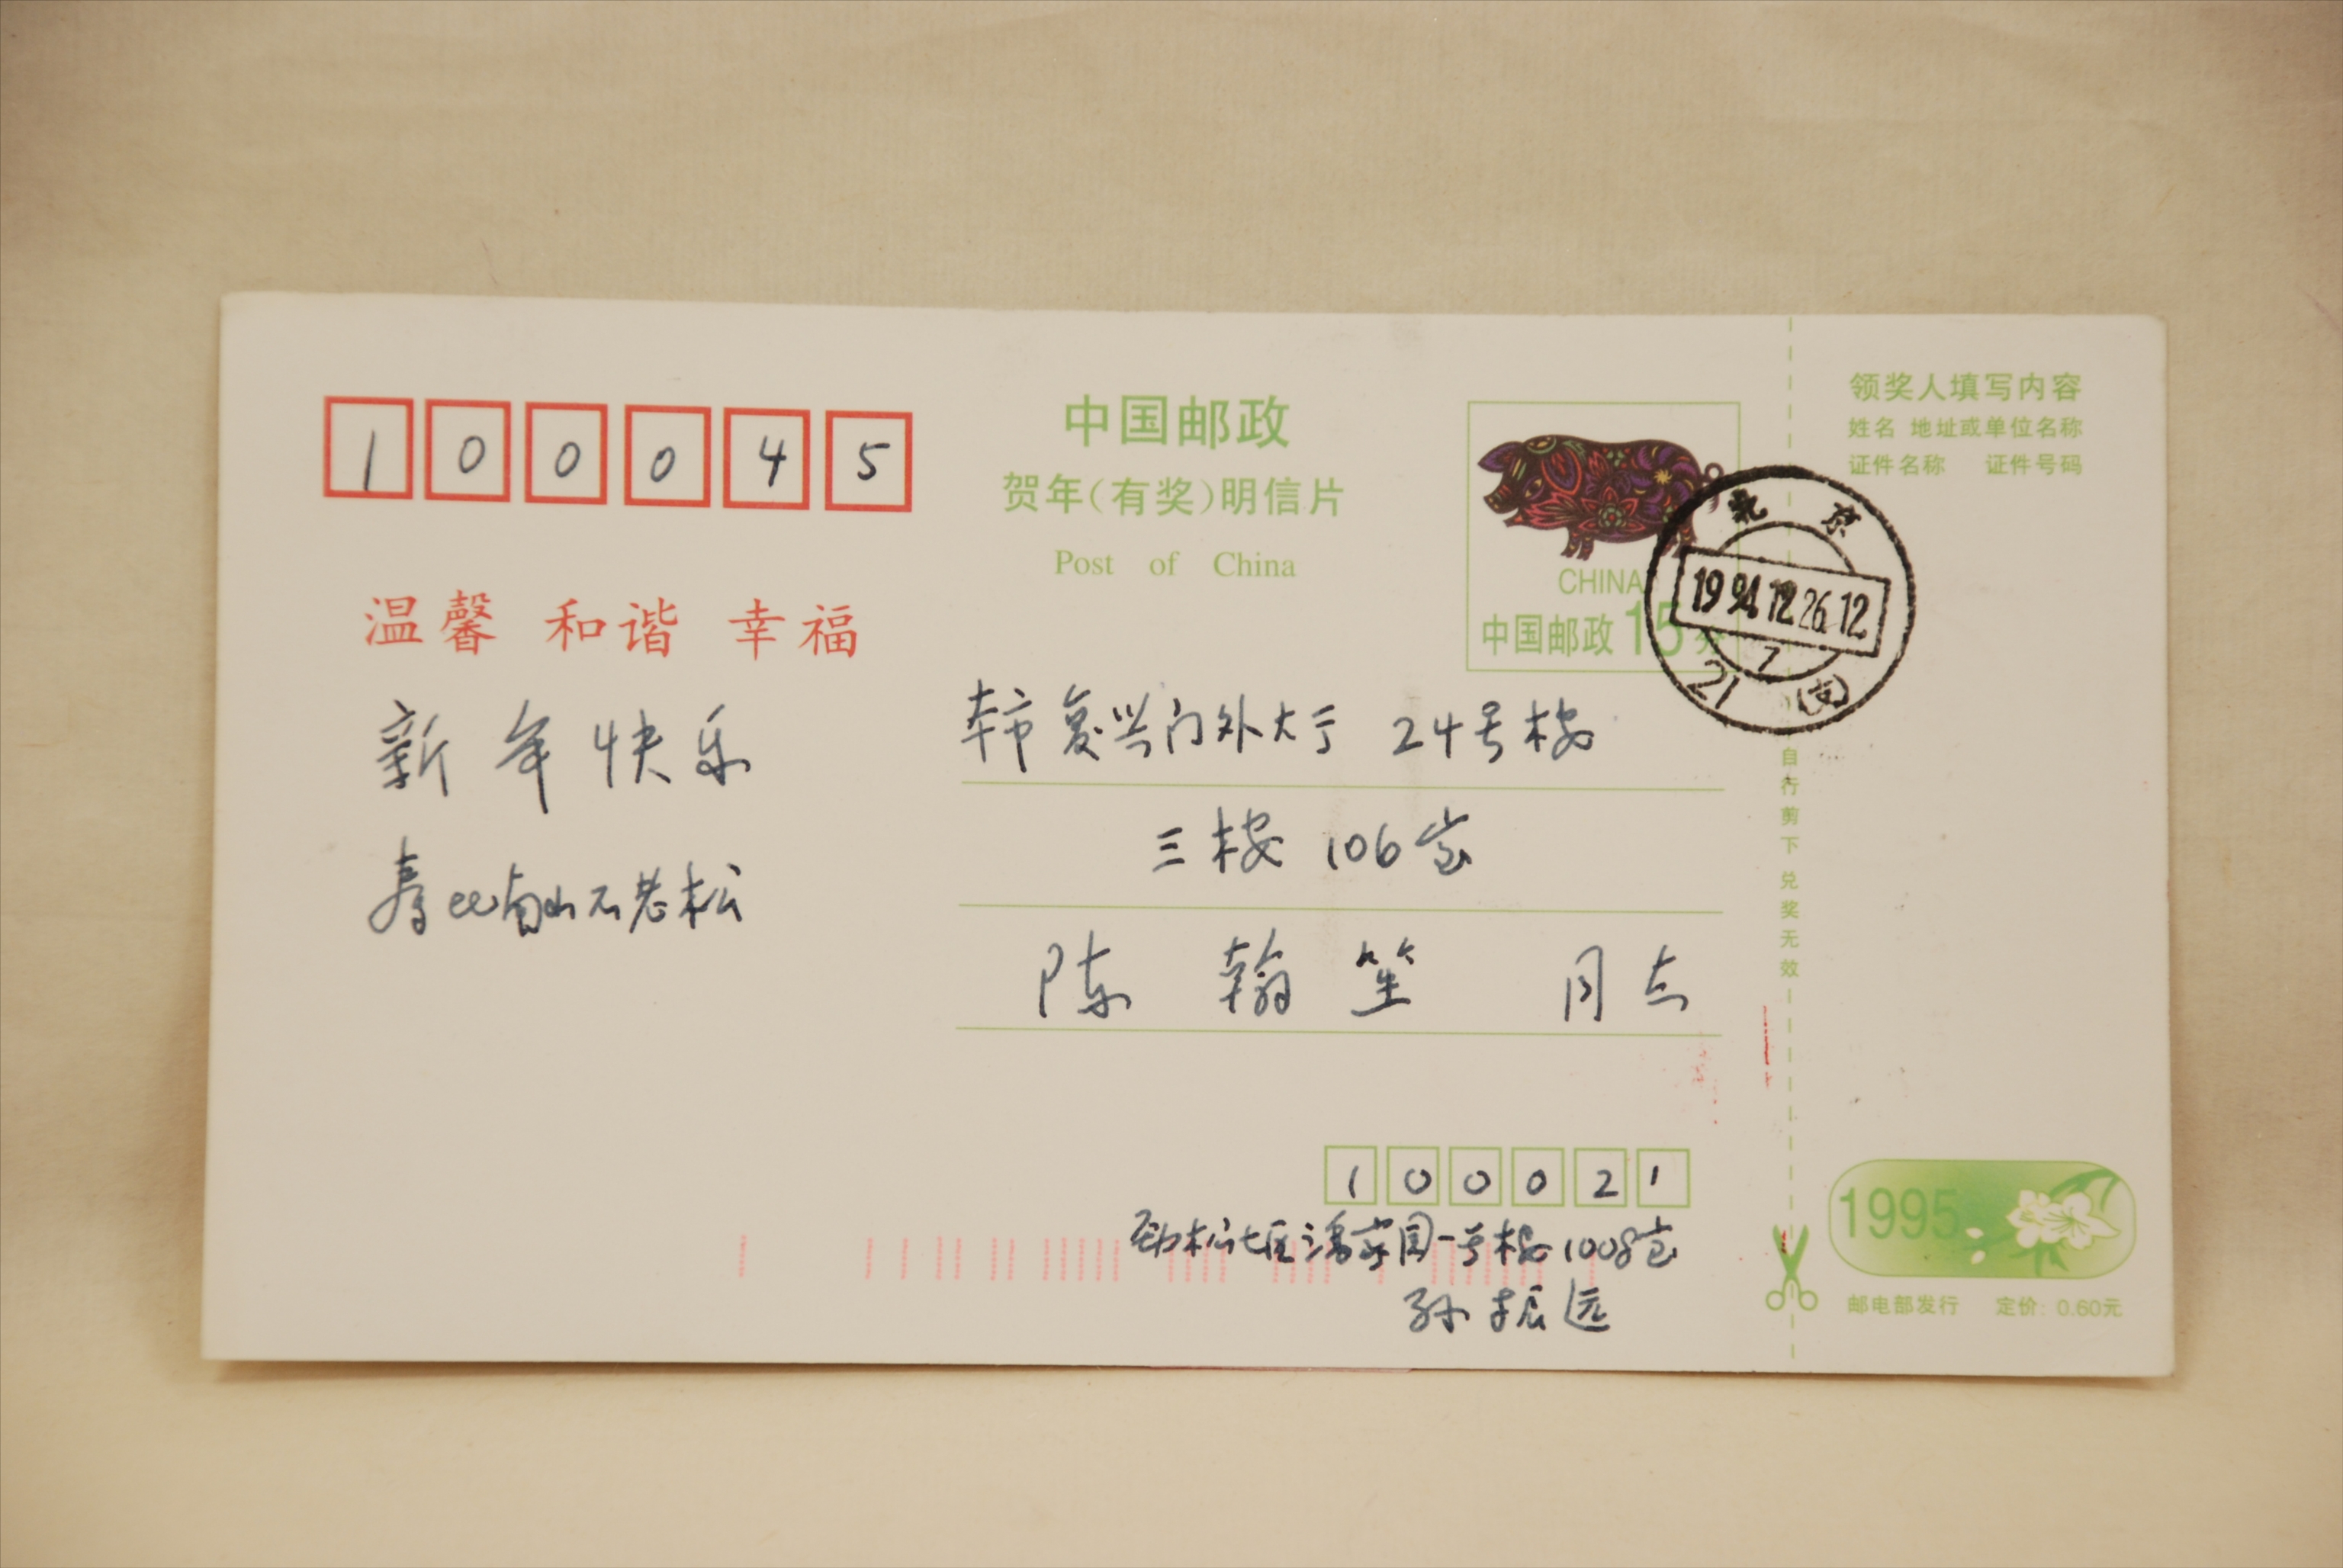 100045
中国邮政
贺年(有奖)明信片
Post of China
CHINA
中国邮政15分
领奖人填写内容
姓名 地址或单位名称
证件名称 证件号码
北京
1994.12.26.12
7
21 (支)
温馨 和谐 幸福
新年快乐
寿比南山不老松
本市复兴门外大于 24号楼
三楼 106室
陈翰笙 同志
自行剪下兑奖无效
100021
劲松七区潘家园一号楼1008室
孙振远
1995
邮电部发行 定价: 0.60元